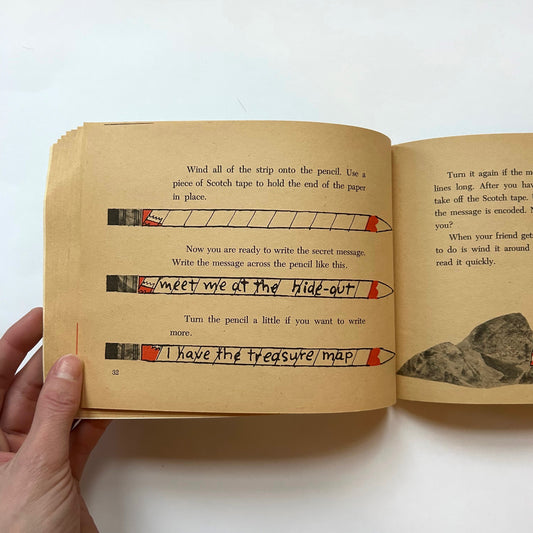 Wind all of the strip onto the pencil. Use a
piece of Scotch tape to hold the end of the paper
in place.
Now you are ready to write the secret message.
Write the message across the pencil like this.
meet me at the hide-out
Turn the pencil a little if you want to write
more.
I have the treasure map
32
Turn it again if the
lines long. After you
take off the Scotch tape.
the message is encoded.
you?
When your friend
to do is wind it around
read it quickly.